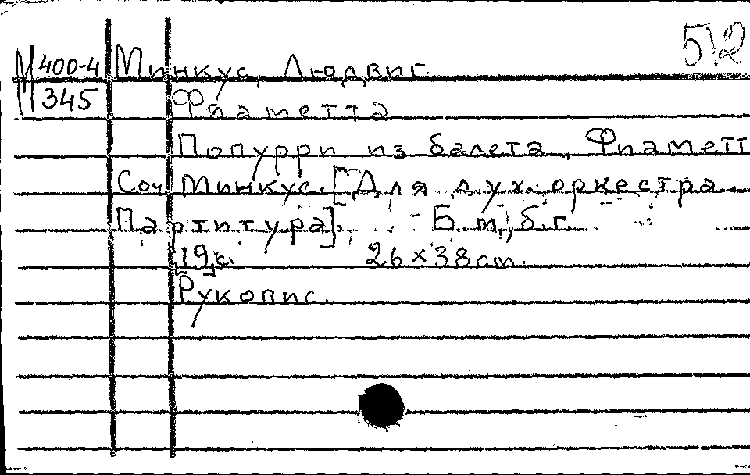 512
М 400-4 Минкус, Людвиг
345 Фиаметта
Попурри из балета „Фиаметт
Соч. Минкус. [Для дух. оркестра.
Партитура]. Б.м., б.г.
19с. 26×38cm.
Рукопис.